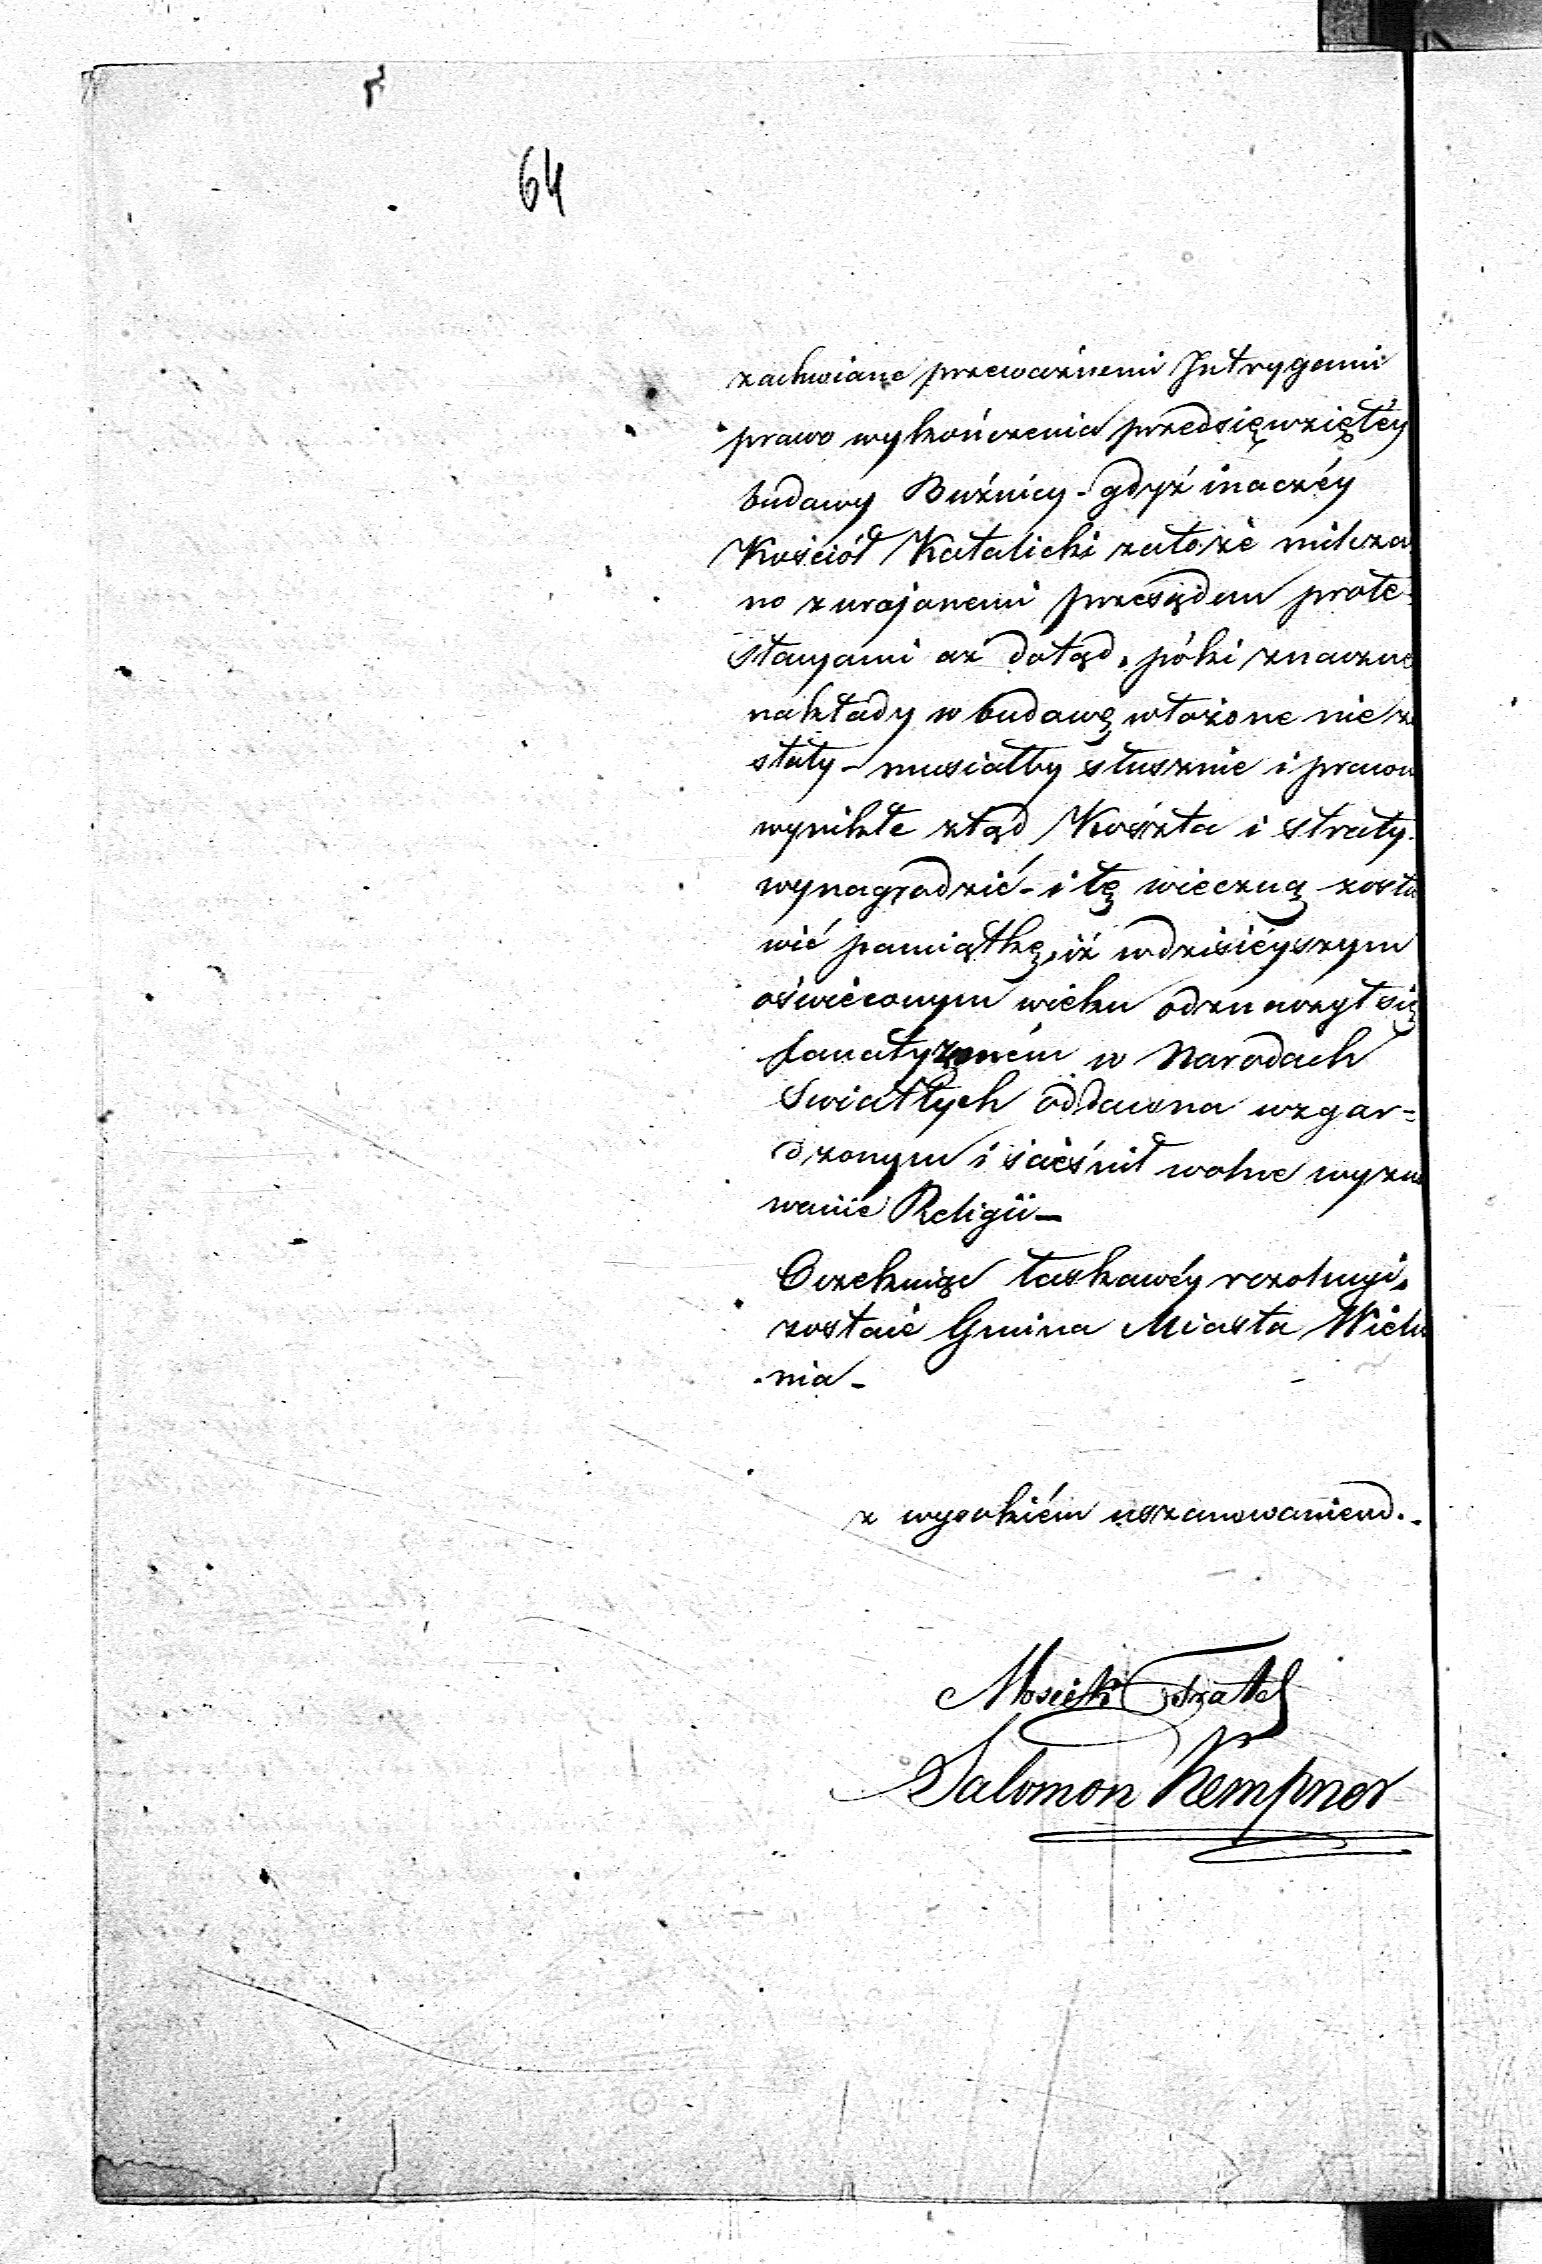 64
zachwiane przeważnemi Intrygami
prawo wykończenia przedsięwziętéy
budowy Bużnicy - gdyż inaczéy
Kościół Katolicki zato że milcza
no z urojonemi przesądem prote-
stacyami aż dotąd, póki znaczne
nakłady w budowę włożone nie zo
stały - musiałby słusznie i prawn
wynikłe ztąd Koszta i straty
wynagrodzić - i tę wieczną zosta
wić pamiątkę, iż w dzisiéyszym
oświeconym wieku odznaczył się
fanatyzmém w Narodach
Swiatłych oddawna wzgar=
dzonym i ścieśnił wolne wyzna
wanie Religii -
Oczekując łaskawéy rezolucyi,
zostaie Gmina Miasta Wielu
nia -
z wysokiém uszanowaniem. -
Salomon Kempner